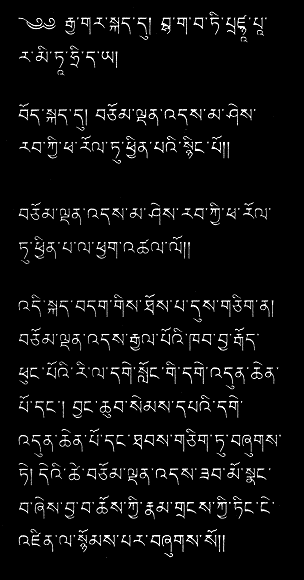 ༄༅༅། རྒྱ་གར་སྐད་དུ། བྷ་ག་བ་ཏི་པྲཛྙཱ་པཱ་
ར་མི་ཏཱ་ཧྲི་ད་ཡ།
བོད་སྐད་དུ། བཅོམ་ལྡན་འདས་མ་ཤེས་
རབ་ཀྱི་ཕ་རོལ་ཏུ་ཕྱིན་པའི་སྙིང་པོ།།
བཅོམ་ལྡན་འདས་མ་ཤེས་རབ་ཀྱི་ཕ་རོལ་
ཏུ་ཕྱིན་པ་ལ་ཕྱག་འཚལ་ལོ།།
འདི་སྐད་བདག་གིས་ཐོས་པ་དུས་གཅིག་ན།
བཅོམ་ལྡན་འདས་རྒྱལ་པོའི་ཁབ་བྱ་རྒོད་
ཕུང་པོའི་རི་ལ་དགེ་སློང་གི་དགེ་འདུན་ཆེན་
པོ་དང་། བྱང་ཆུབ་སེམས་དཔའི་དགེ་
འདུན་ཆེན་པོ་དང་ཐབས་གཅིག་ཏུ་བཞུགས་
ཏེ། དེའི་ཚེ་བཅོམ་ལྡན་འདས་ཟབ་མོ་སྣང་
བ་ཞེས་བྱ་བ་ཆོས་ཀྱི་རྣམ་གྲངས་ཀྱི་ཏིང་ངེ་
འཛིན་ལ་སྙོམས་པར་བཞུགས་སོ།།